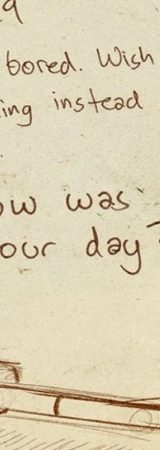 bored. Wish
ing instead
ow was
our day?